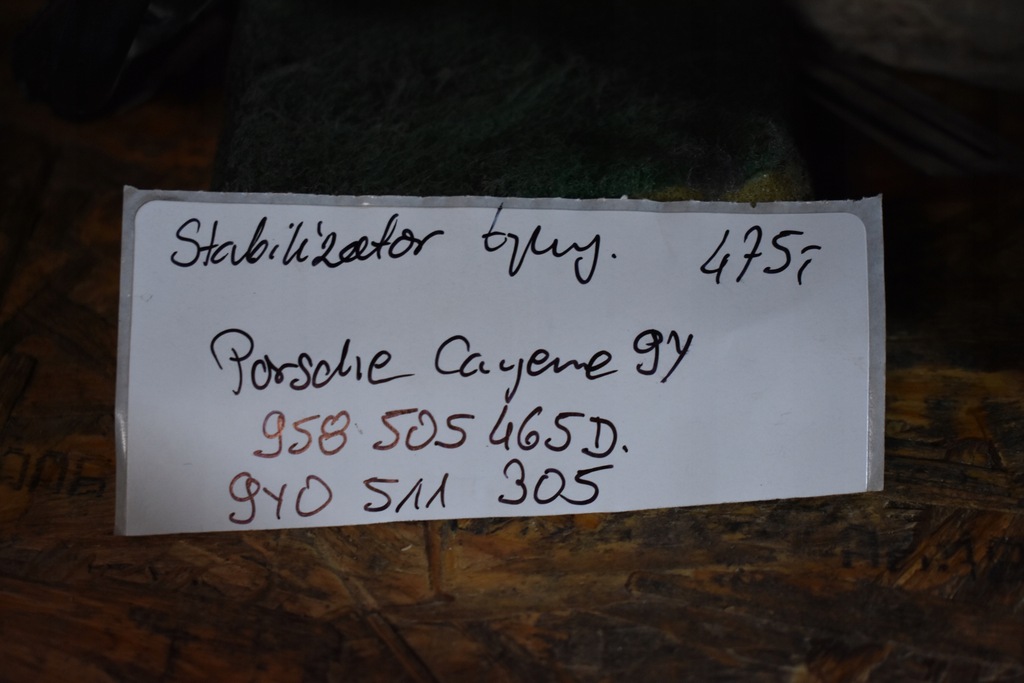 Stabilizator tylny. 475,-
Porsche Cayenne 9Y
958 505 465D.
9Y0 511 305